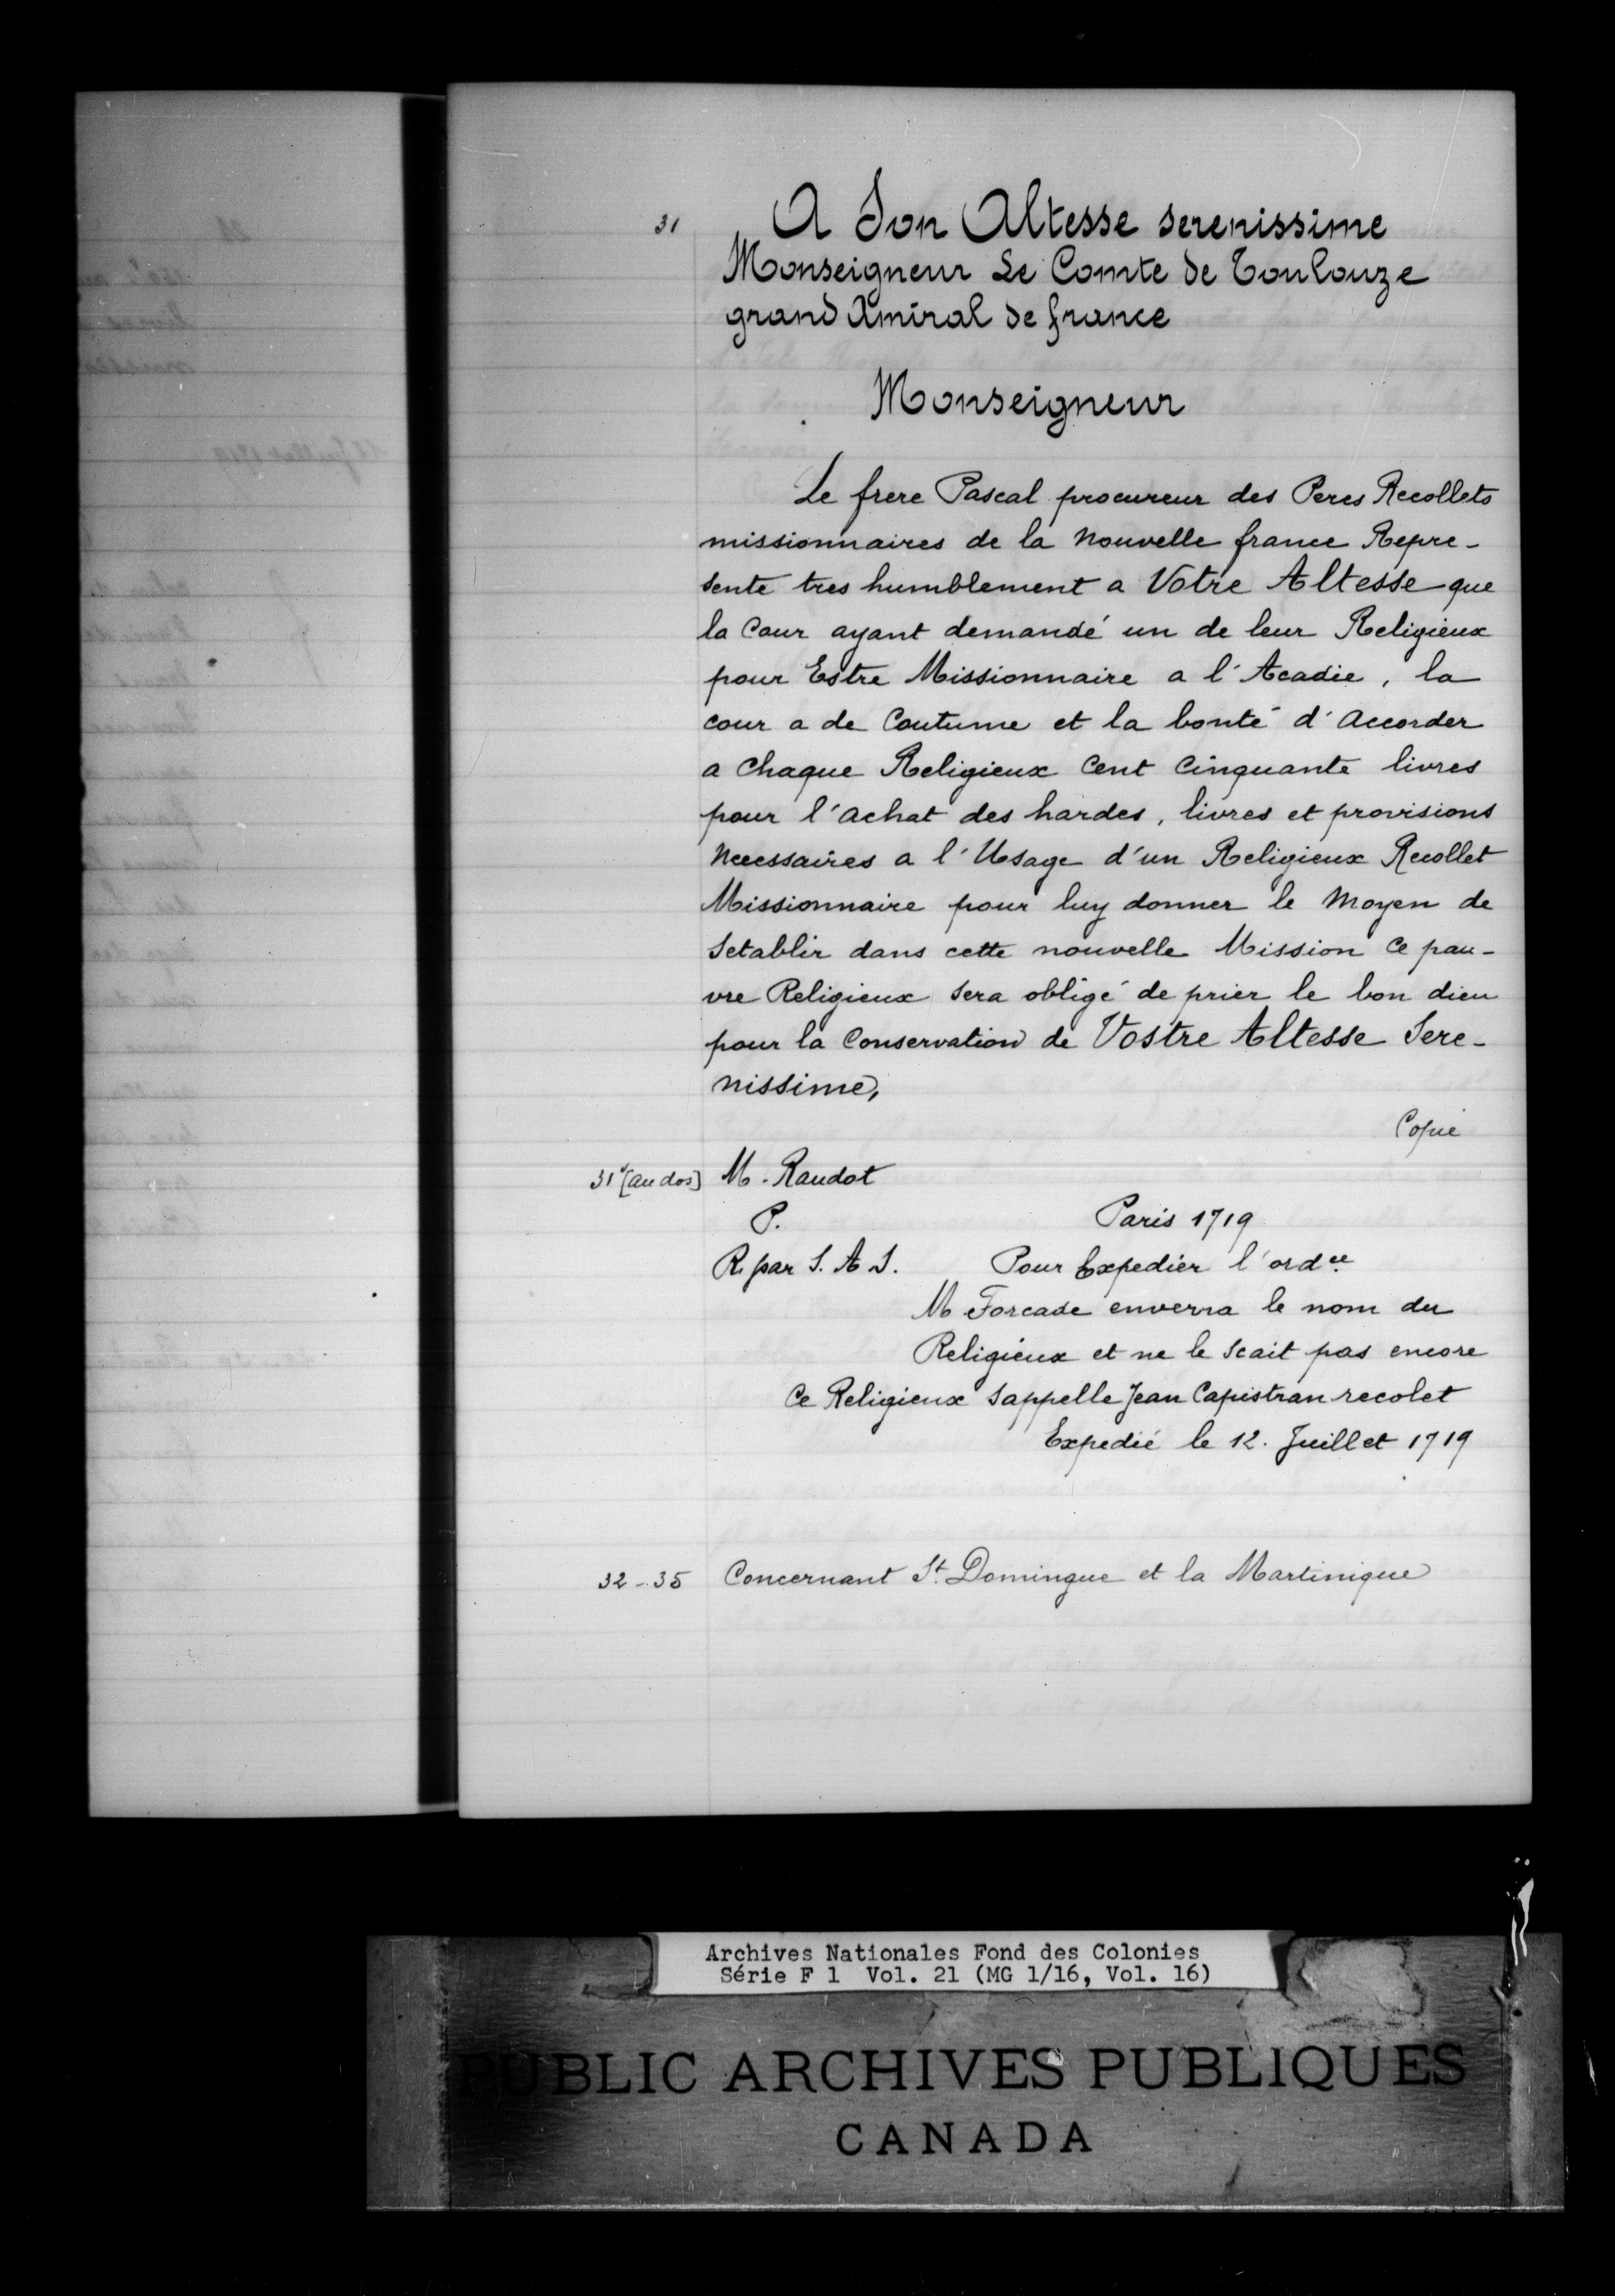 31 A Son Altesse serenissime
Monseigneur Le Comte de Toulouze
grand Amiral de france
Monseigneur
Le frere Pascal procureur des Peres Recollets
missionnaires de la Nouvelle france Repre-
sente tres humblement a Votre Altesse que
la Cour ayant demandé un de leur Religieux
pour Estre Missionnaire a l'Acadie, la
cour a de Coutume et la bonté d'accorder
a Chaque Religieux Cent Cinquante livres
pour l'achat des hardes, livres et provisions
Necessaires a l'Usage d'un Religieux Recollet
Missionnaire pour luy donner le Moyen de
Setablir dans cette nouvelle Mission Ce pau-
vre Religieux Sera obligé de prier le bon dieu
pour la Conservation de Vostre Altesse Sere-
nissime,
Copié
31v [au dos] M. Raudot
P. Paris 1719
R. par S. A. S. Pour Expedier l'ordce
M Forcade enverra le nom du
Religieux et ne le Scait pas encore
Ce Religieux Sappelle Jean Capistran recolet
Expedié le 12. Juillet 1719
32-35 Concernant St. Domingue et la Martinique
Archives Nationales Fond des Colonies
Série F 1 Vol. 21 (MG 1/16, Vol. 16)
PUBLIC ARCHIVES PUBLIQUES
CANADA